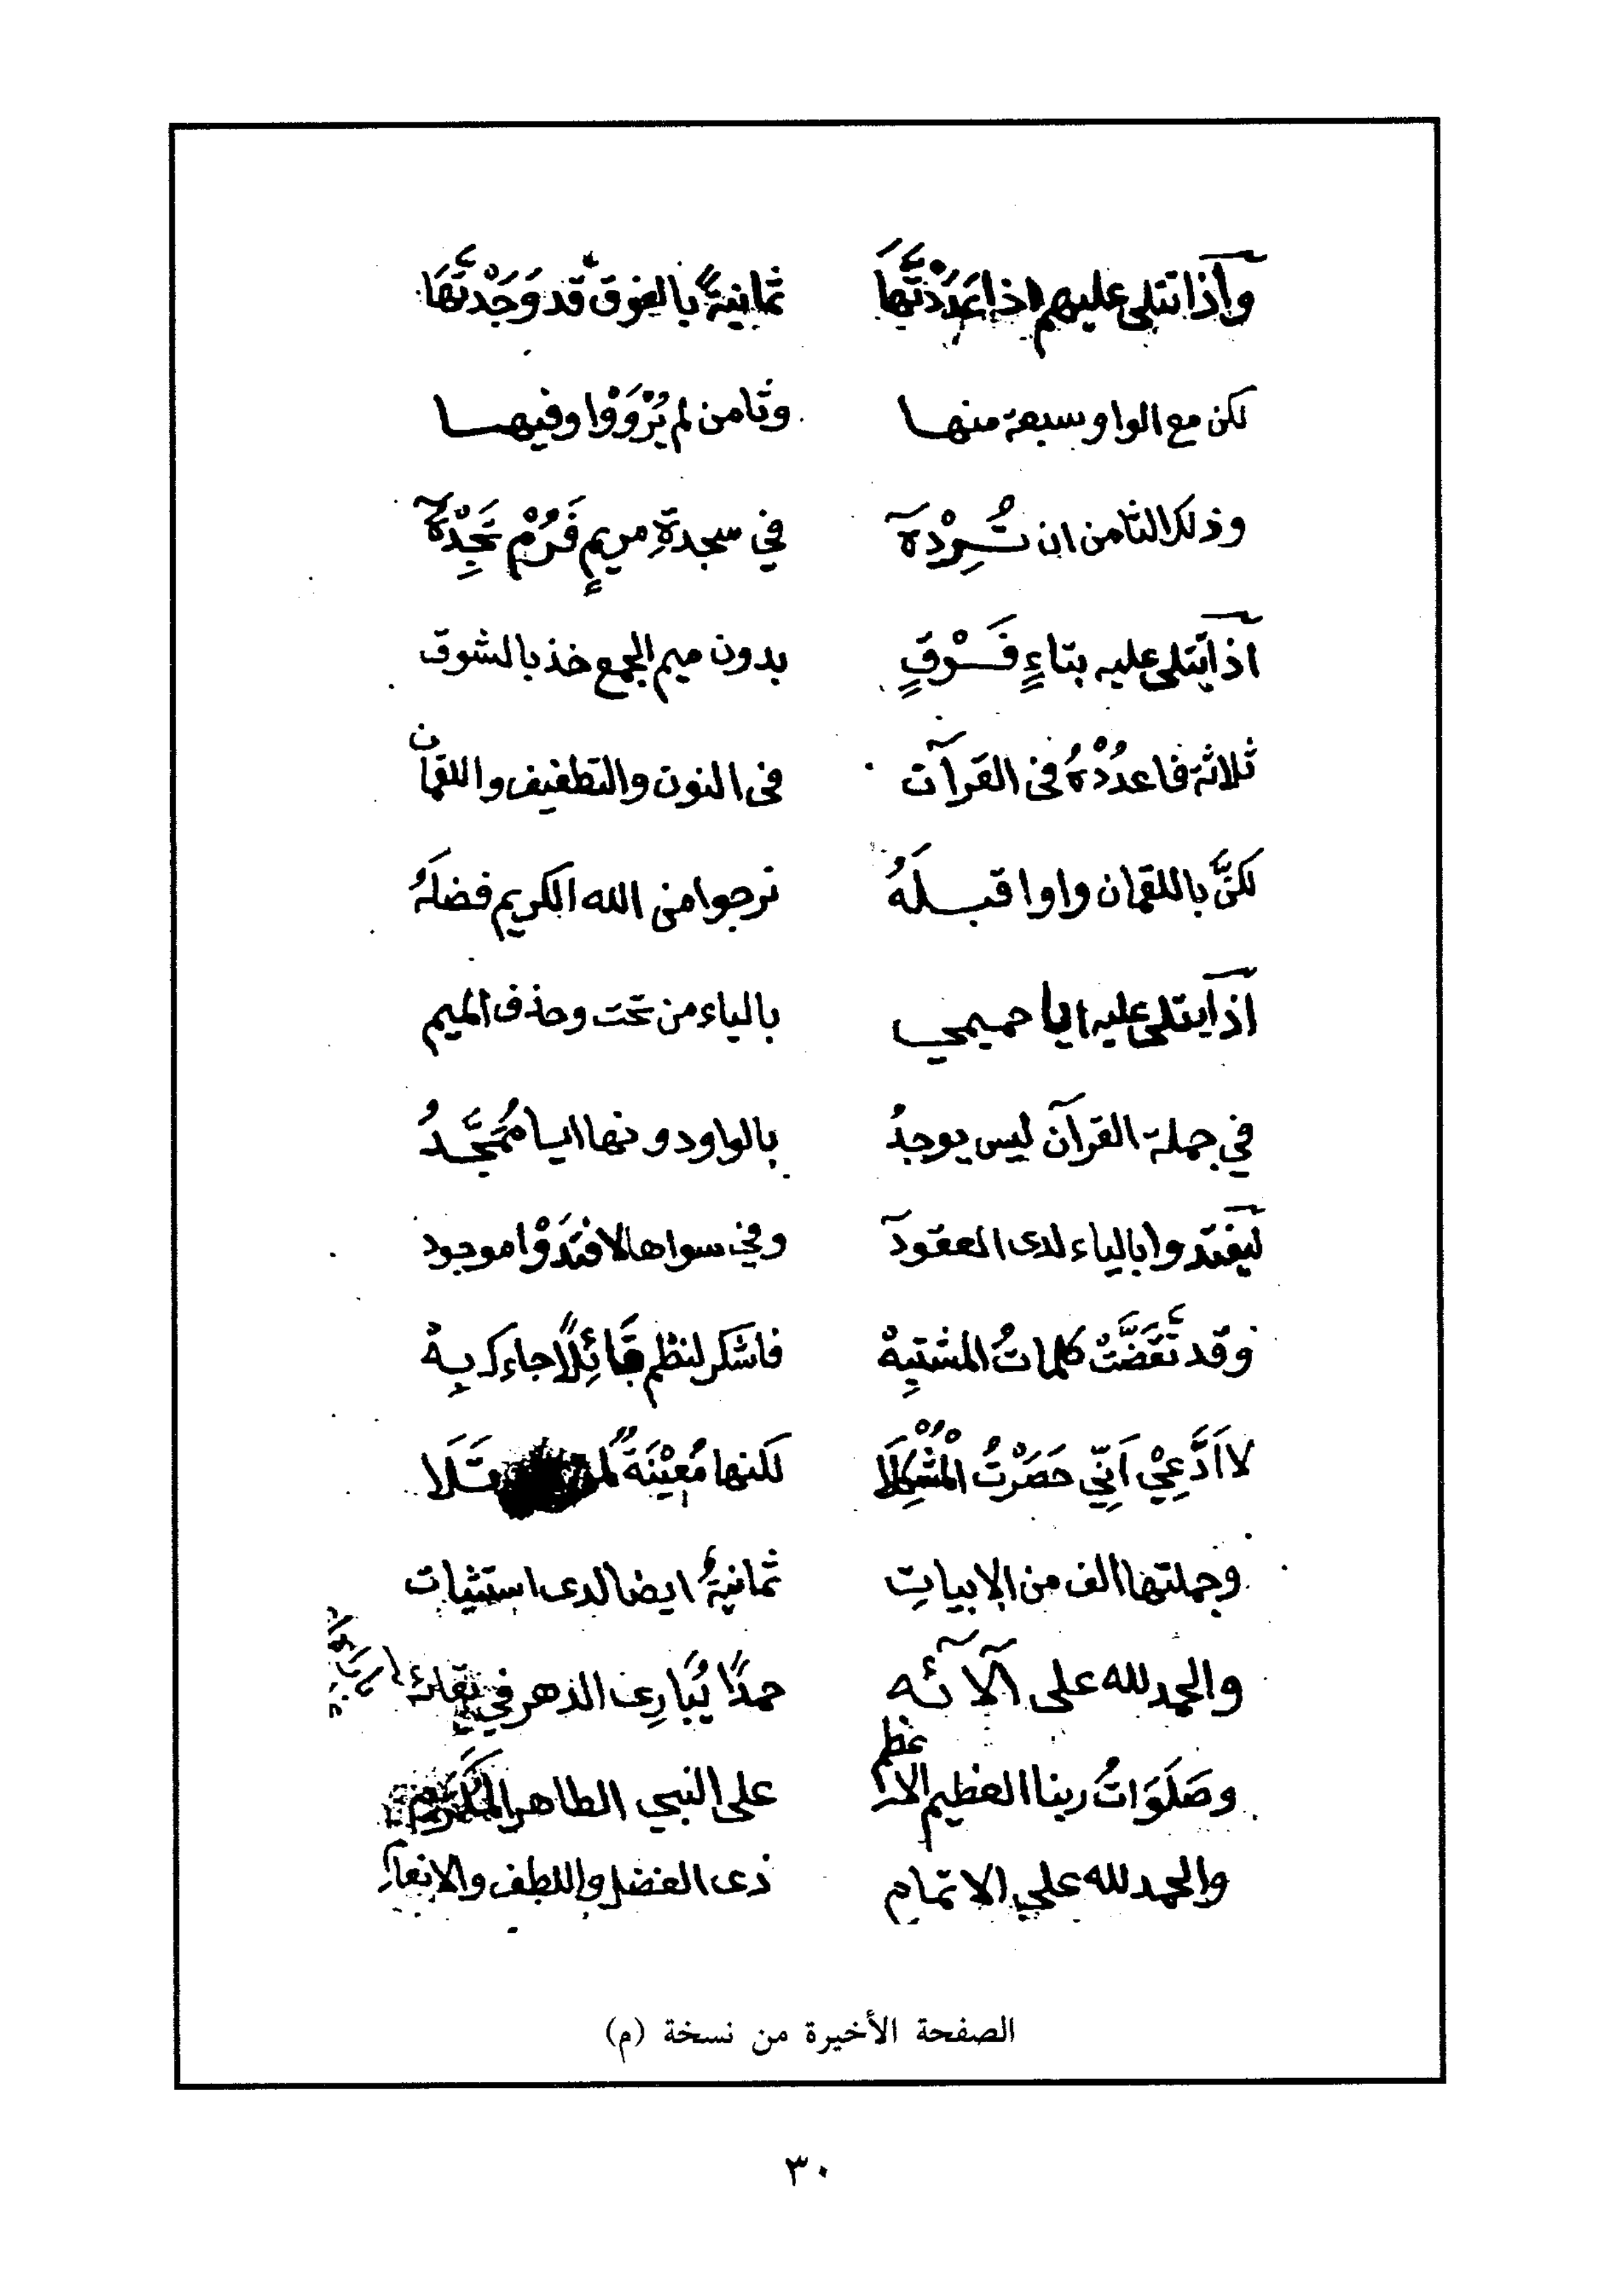 وآذا تتلى عليهم اذا عَدَدْتَّهَا ثمانيةً بالفوق قد وَجَدْتَّهَا
لكن مع الواو سبعة منهــا وثامن لم يَرْوَوْا وفيهــا
وذلك الثامن ان تُــرِدْهٓ في سجدةِ مريمٍ فَرُمْ تَجِدْهٓ
آذا تتلى عليه بتاءٍ فَــوْقٍ بدون ميم الجمع خذ بالشوق
ثلاثة فاعدُدْهُ فى القرآن فى النون والتطفيف واللقمان
لكنَّ باللقمان واوا قبــلَهُ نرجوا من الله الكريم فضلَهُ
آذا يتلى عليه ايا حميمي بالياء من تحت وحذف الميم
في جملة القرآن ليس يوجدُ بالواو دونها ايا مُمَجَّــدُ
ليفتدوا بالياء لدى العقود وفي سواها لافتدَوْا موجود
وقد تَقَضَّتْ كلماتُ المشتبِهْ فاشكر لنظم قَائِلًا جاءك بِهْ
لا اَدَّعِيْ اَنِّي حَصَرْتُ الْمُشْكِلَا لكنها مُعِيْنَةٌ تَــلَا
وجملتها الف من الابياتِ ثمانيةُ ايضا لدى استثيات
والحمد لله على آلآئه حمدًا يُبَارِى الدهر في بقائه
وصَلَوَاتُ ربنا العظيم الاعظم على النبي الطاهر المكَرَّم
والحمد لله علي الاتمام ذى الفضل واللطف والانعام
الصفحة الأخيرة من نسخة (م)
٣٠